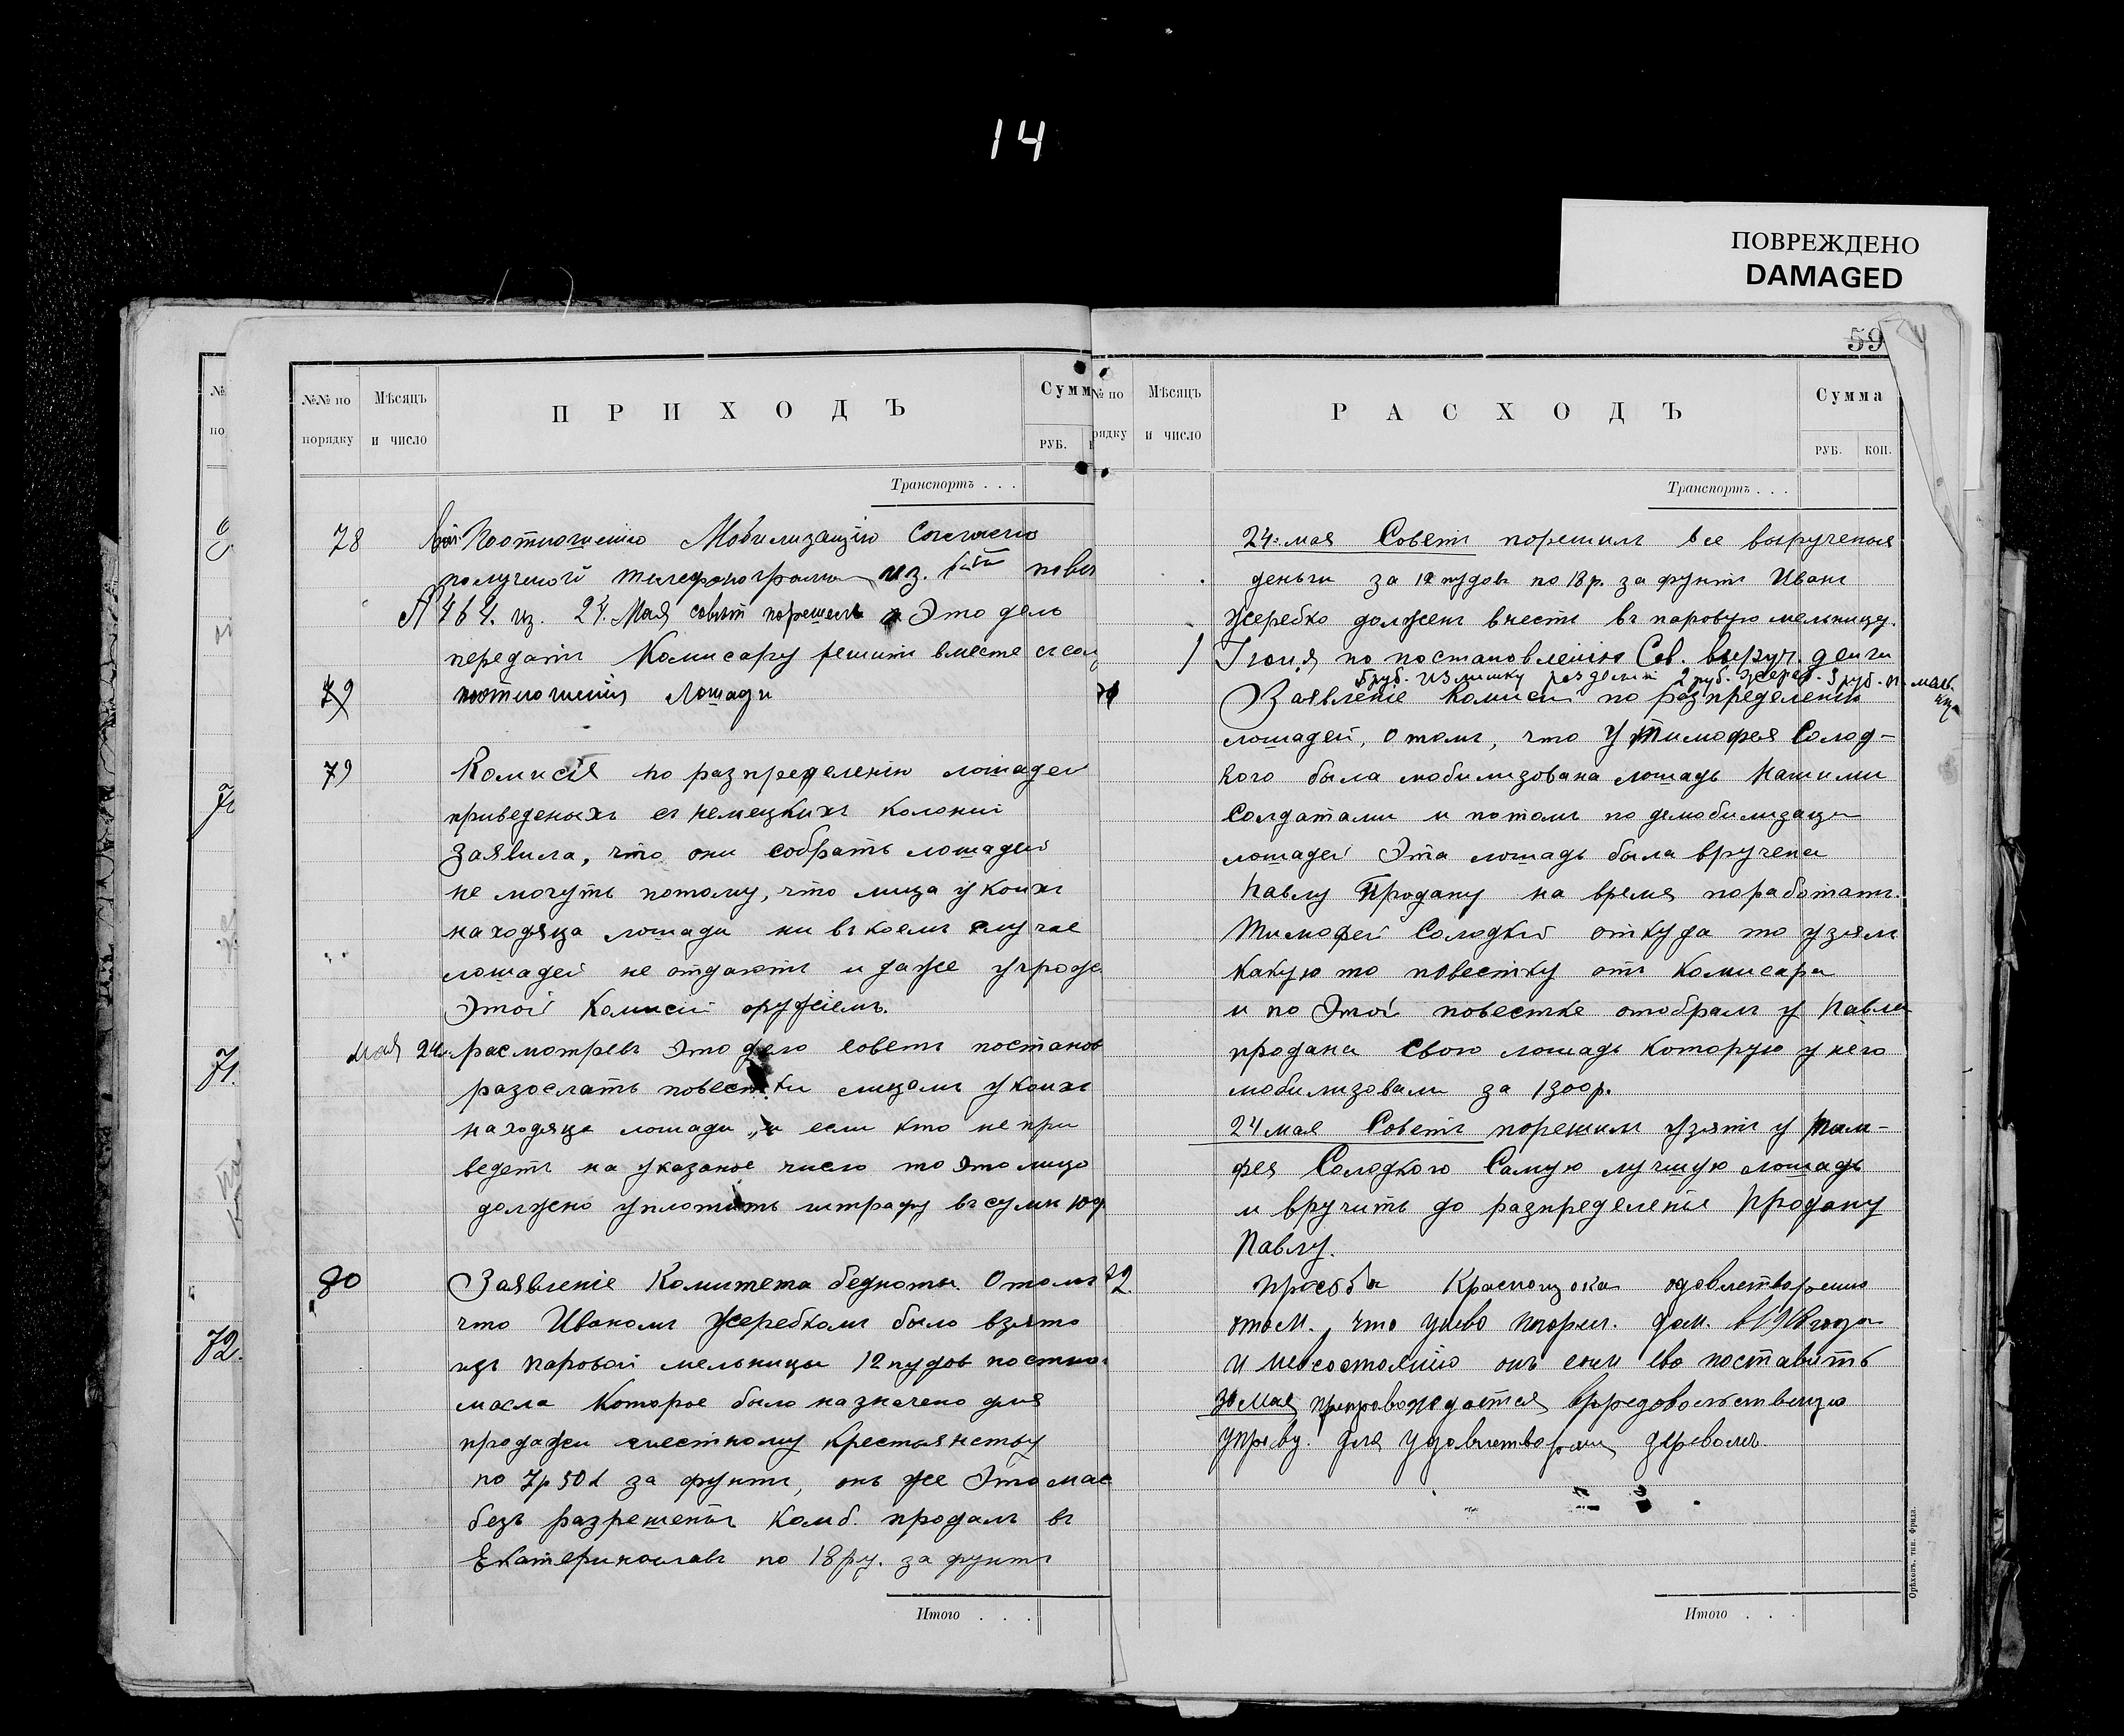 14
ПОВРЕЖДЕНО
DAMAGED
№
по
71.
72.
№№ по порядку
Мѣсяцъ и число
ПРИХОДЪ
Сумм
РУБ.
Транспортъ . . .
78 Поотношению Мобилизацію Согласно
получиной телефонограмы из. повы
№ 464. из. 24. Мая совѣт порешил Это дело
передать Комисару решить вместе съ
79 поотношенія Лошади
79 Комисія по разпределенію лошадей
приведеныхъ съ немецкихъ колоний
заявила, что они собрать лошадей
не могутъ потому, что лица у коихъ
находяца лошади ни въ коемъ случае
лошадей не отдаютъ и даже угрожа
Этой Комисіи оружіемъ.
Мая 24. расмотревъ это дело советъ постанов
разослать повестки лицамъ у коихъ
находяца лошади, и если кто не при
ведетъ на указаное число то это лицо
должно уплотить штрафу въ суми
80 Заявленіе Комитета бедноты. Отомъ
что Иваномъ Жеребкомъ было взято
изъ паровой мельницы 12 пудов постно
масла которое было назначено для
продажи местному крестьянству
по 7р 50к за фунтъ, онъ же Это мас
безъ разрешенья Комб. продалъ въ
Екатеринославъ по 18 ру. за фунтъ
Итого . . .
59
№ по рядку
Мѣсяцъ и число
РАСХОДЪ
Сумма
РУБ. КОП.
Транспортъ . . .
24. мая Советъ порешилъ все вырученыя
деньги за 12 пудовъ по 18 р. за фунтъ Иванъ
Жеребко должен внести въ паровую мельницу.
Іюня по постановленію Сов. выруч. денги
5 руб. излишку раздолит 2 руб. Жереб. 3 руб.
Заявленіе Комиси по разпределенію
лошадей, отомъ, что у Тимофея Солод-
кого была мобилизована лошадь нашими
Солдатами и потомъ по демобилизаци
лошадей Эта лошадь была вручена
Павлу Продану на время поработать.
Тимофей Солодкий откуда то узял
какую то повестку отъ Комисара
и по Этой повестке отобралъ у Павла
продана свою лошадь которую у него
мобилизовали за 1300р.
24 мая Советъ порешилъ узять у Тим-
фея Солодкого Самую лучшую лошадь
и вручить до разпределенія Продану
Павлу.
72. просьба одовлетворено
отом. что унево погорел. дом. в 1918 года
и онъ ево поставить
30 Мая препровождается впредовольственую
управу. для удовлетворения деревомъ.
Итого . . .
Орѣховъ. тип. Фрида.